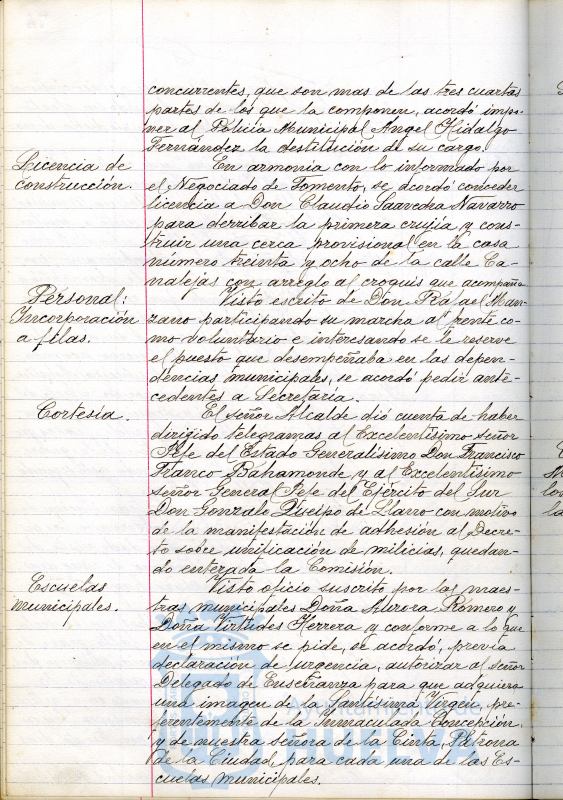 concurrentes, que son mas de las tres cuartas
partes de los que la componen, acordó impo-
ner al Policía Municipal Angel Hidalgo
Fernández la destitución de su cargo.
Licencia de
construcción.
En armonia con lo informado por
el Negociado de Fomento, se acordó conceder
licencia a Don Claudio Saavedra Navarro
para derribar la primera crujía y cons-
truir una cerca provisional en la casa
número treinta y ocho de la calle Ca-
nalejas con arreglo al croquis que acompaña
Personal:
Incorporación
a filas.
Visto escrito de Don Rafael Man-
zano participando su marcha al frente co-
mo voluntario e interesando se le reserve
el puesto que desempeñaba en las depen-
dencias municipales, se acordó pedir ante-
cedentes a Secretaria.
Cortesía.
El señor Alcalde dió cuenta de haber
dirigido telegramas al Excelentísimo señor
Jefe del Estado Generalísimo Don Francisco
Franco Bahamonde y al Excelentísimo
señor General Jefe del Ejército del Sur
Don Gonzalo Queipo de Llano con motivo
de la manifestación de adhesión al Decre-
to sobre unificación de milicias, quedan-
do enterada la Comisión.
Escuelas
municipales.
Visto oficio suscrito por las maes-
tras municipales Doña Aurora Romero y
Doña Virtudes Herrera y conforme a lo que
en el mismo se pide, se acordó, previa
declaración de urgencia, autorizar al señor
Delegado de Enseñanza para que adquiera
una imagen de la Santísima Virgen, pre-
ferentemente de la Inmaculada Concepción,
y de nuestra señora de la Cinta, Patrona
de la Ciudad, para cada una de las Es-
cuelas municipales.